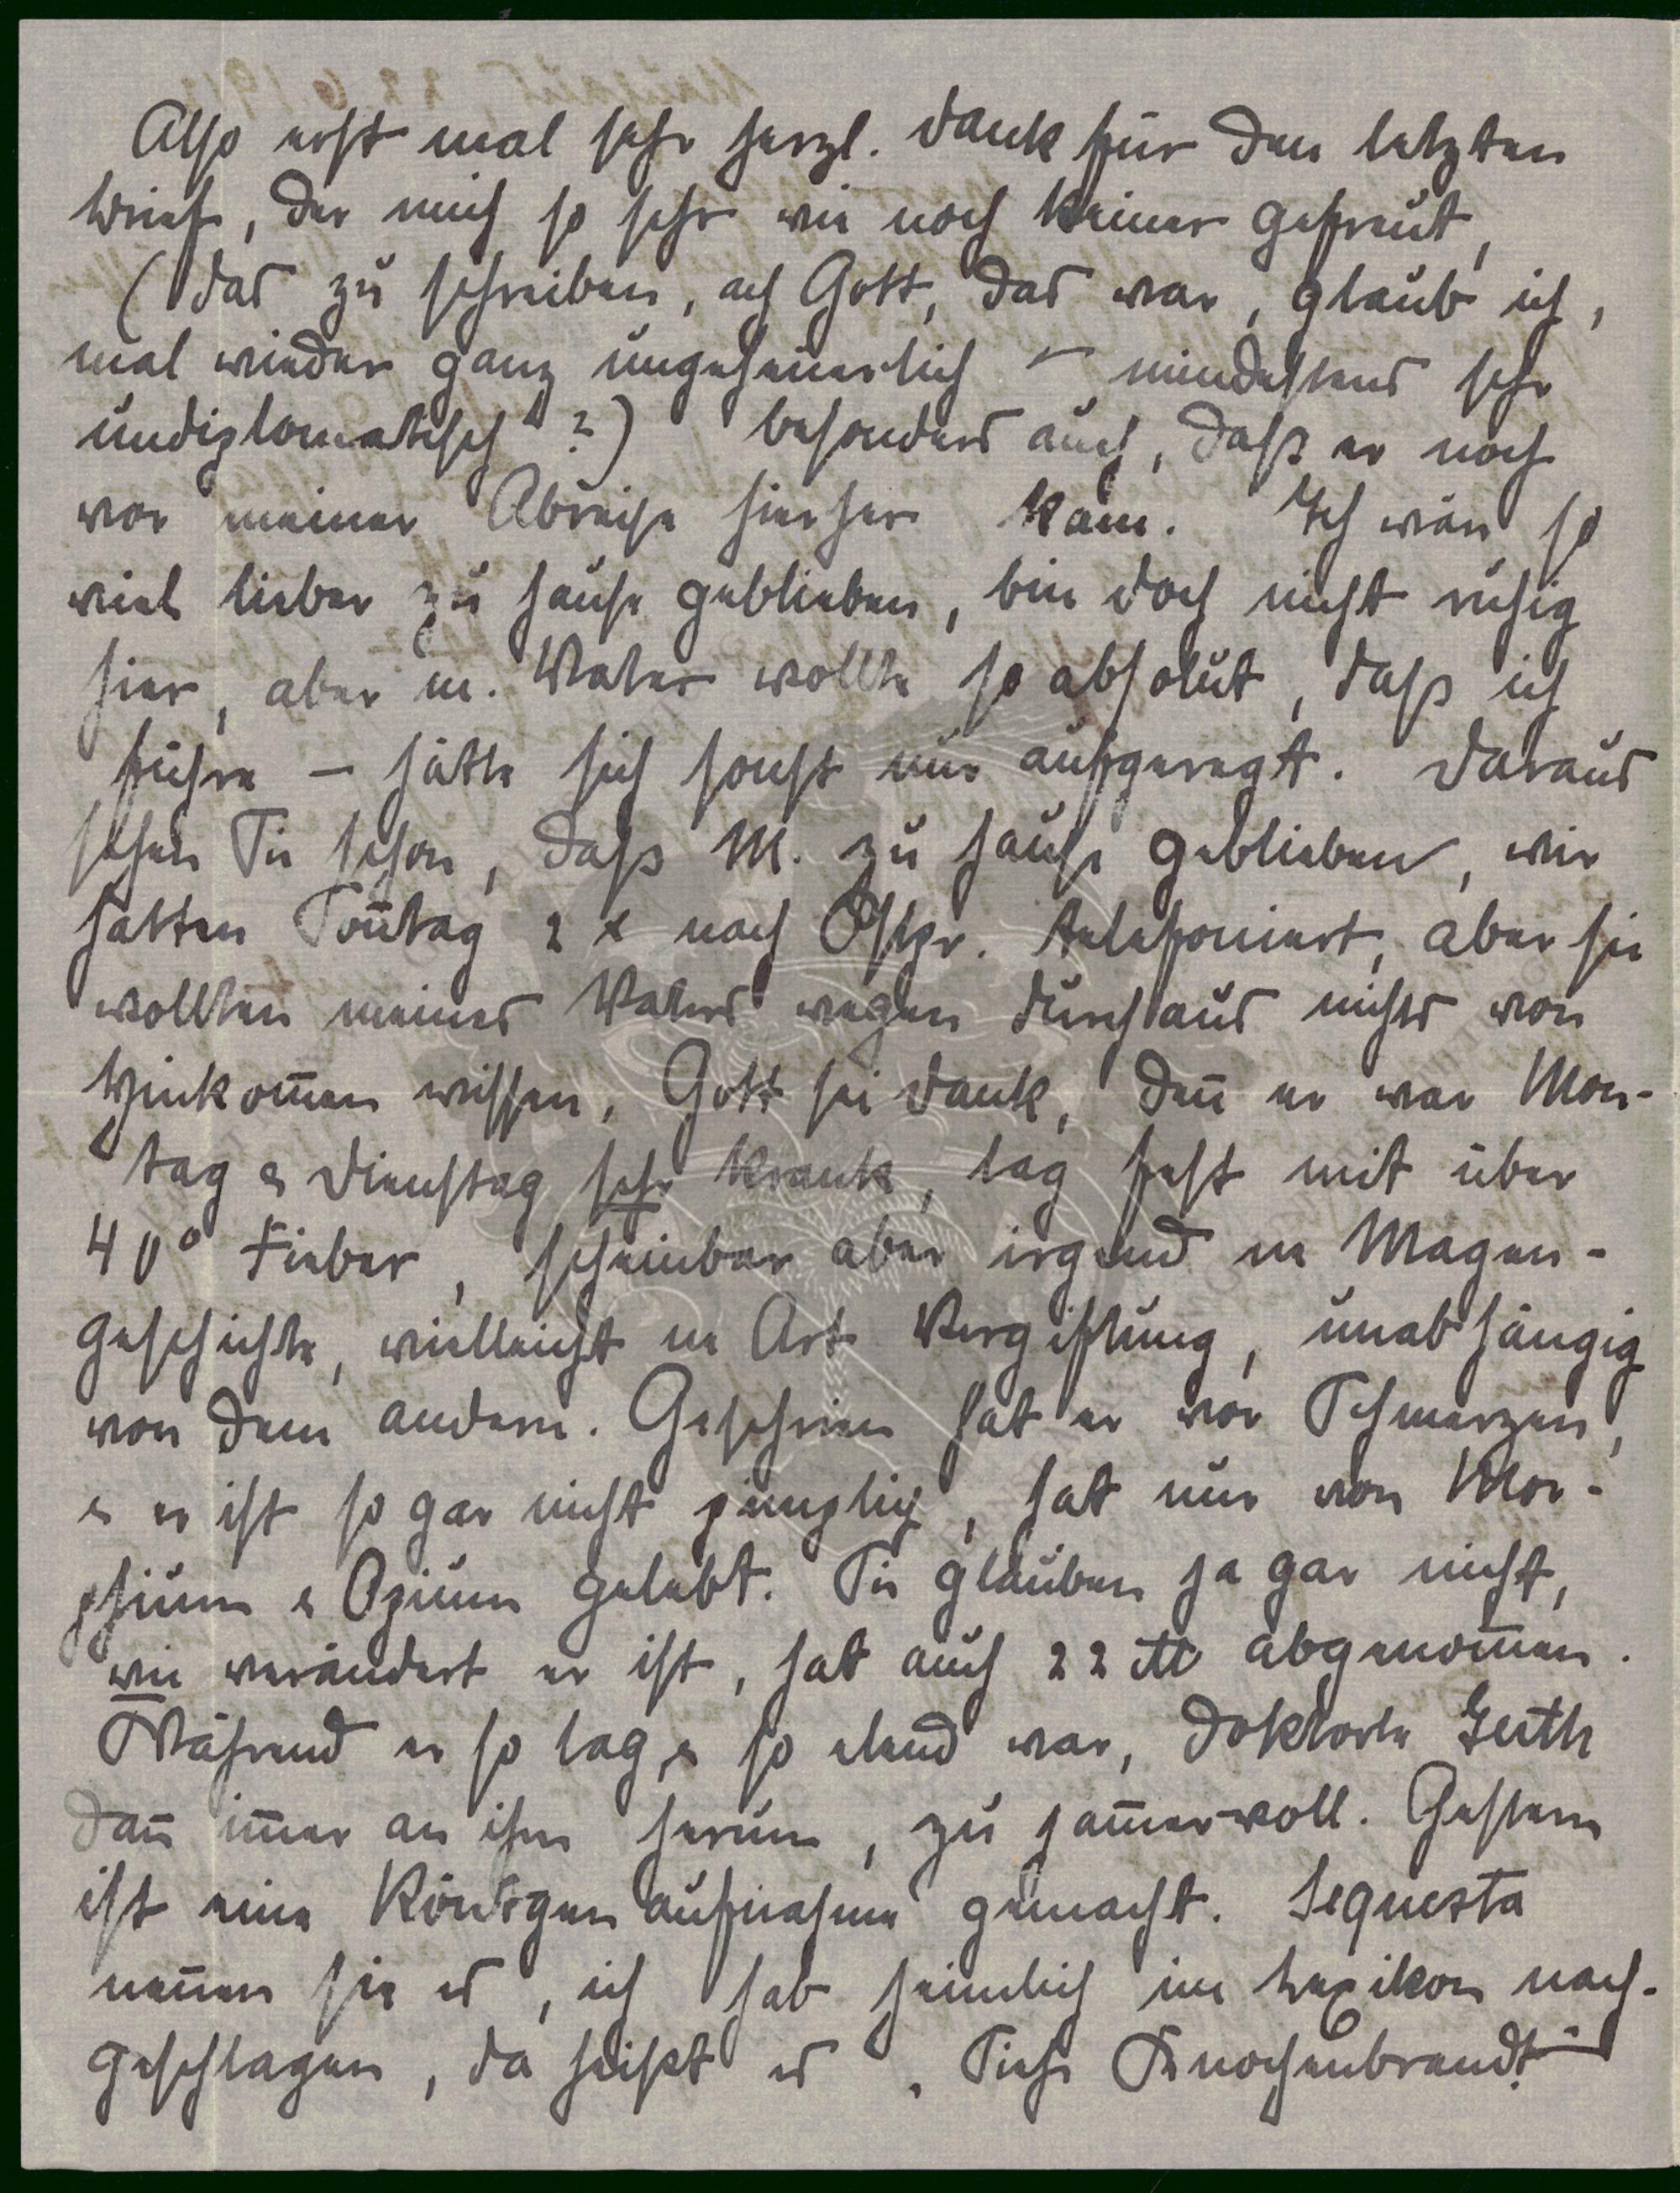 Also erst mal sehr herzl. Dank für den letzten
Brief, der mich so sehr wie noch keiner gefreut,
(das zu schreiben, ach Gott, das war, glaub ich,
mal wieder ganz ungeheuerlich – mindestens sehr
undiplomatisch?) besonders auch, daß er noch
vor meiner Abreise hierher kam. Ich wär so
viel lieber zu Hause geblieben, bin doch nicht ruhig
hier, aber m. Vater wollte so absolut, daß ich
führe – hätte sich sonst nur aufgeregt. Daraus
sehen Sie schon, daß M. zu Hause geblieben, wir
hatten Son̄tag 2 x nach Ostpr. telefoniert, aber sie
wollten meines Vaters wegen durchaus nichts von
Hinkom̄en wissen, Gott sei Dank, den̄ er war Mon-
tag & Dienstag sehr krank, lag fest mit über
40° Fieber, scheinbar aber irgend ne Magen-
geschichte, vielleicht ne Art Vergiftung, unabhängig
von dem andern. Geschrien hat er vor Schmerzen,
& er ist so gar nicht pimplig, hat nur von Mor-
phium & Opium gelebt. Sie glauben ja gar nicht,
wie verändert er ist, hat auch 22 ℔ abgenom̄en.
Während er so lag & so elend war, dokterte Guth
dan̄ im̄er an ihm herum, zu jam̄ervoll. Gestern
ist eine Röntgenaufnahme gemacht. Sequesta
nen̄en sie es, ich hab heimlich im Lexikon nach-
geschlagen, da heißt es „Siehe Knochenbrand“.